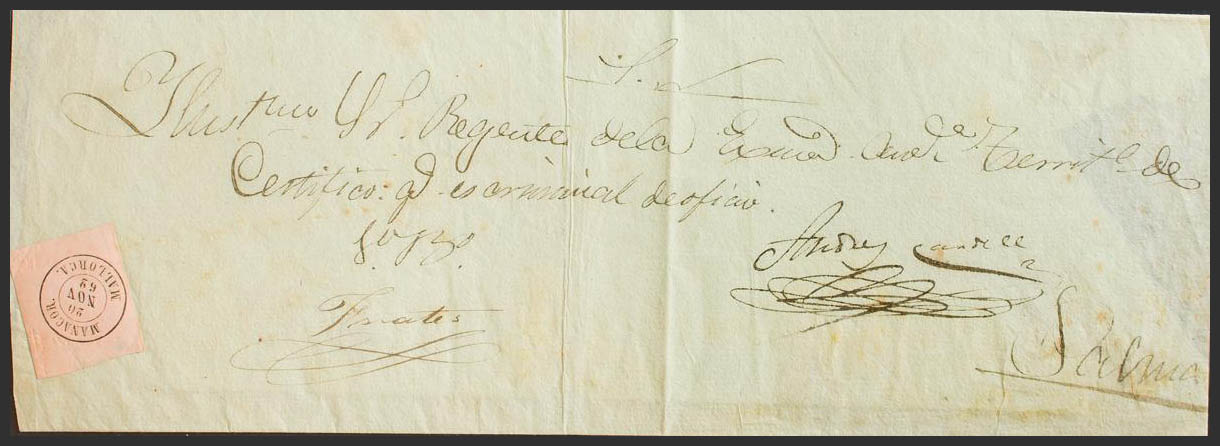 S. N.
Yllustrmo Sr. Regente dela Exma Auda. Territl. de
Certifico qe es criminal de oficio.
Andrés
Palma
MANACOR.
20
NOV
62
MALLORCA.